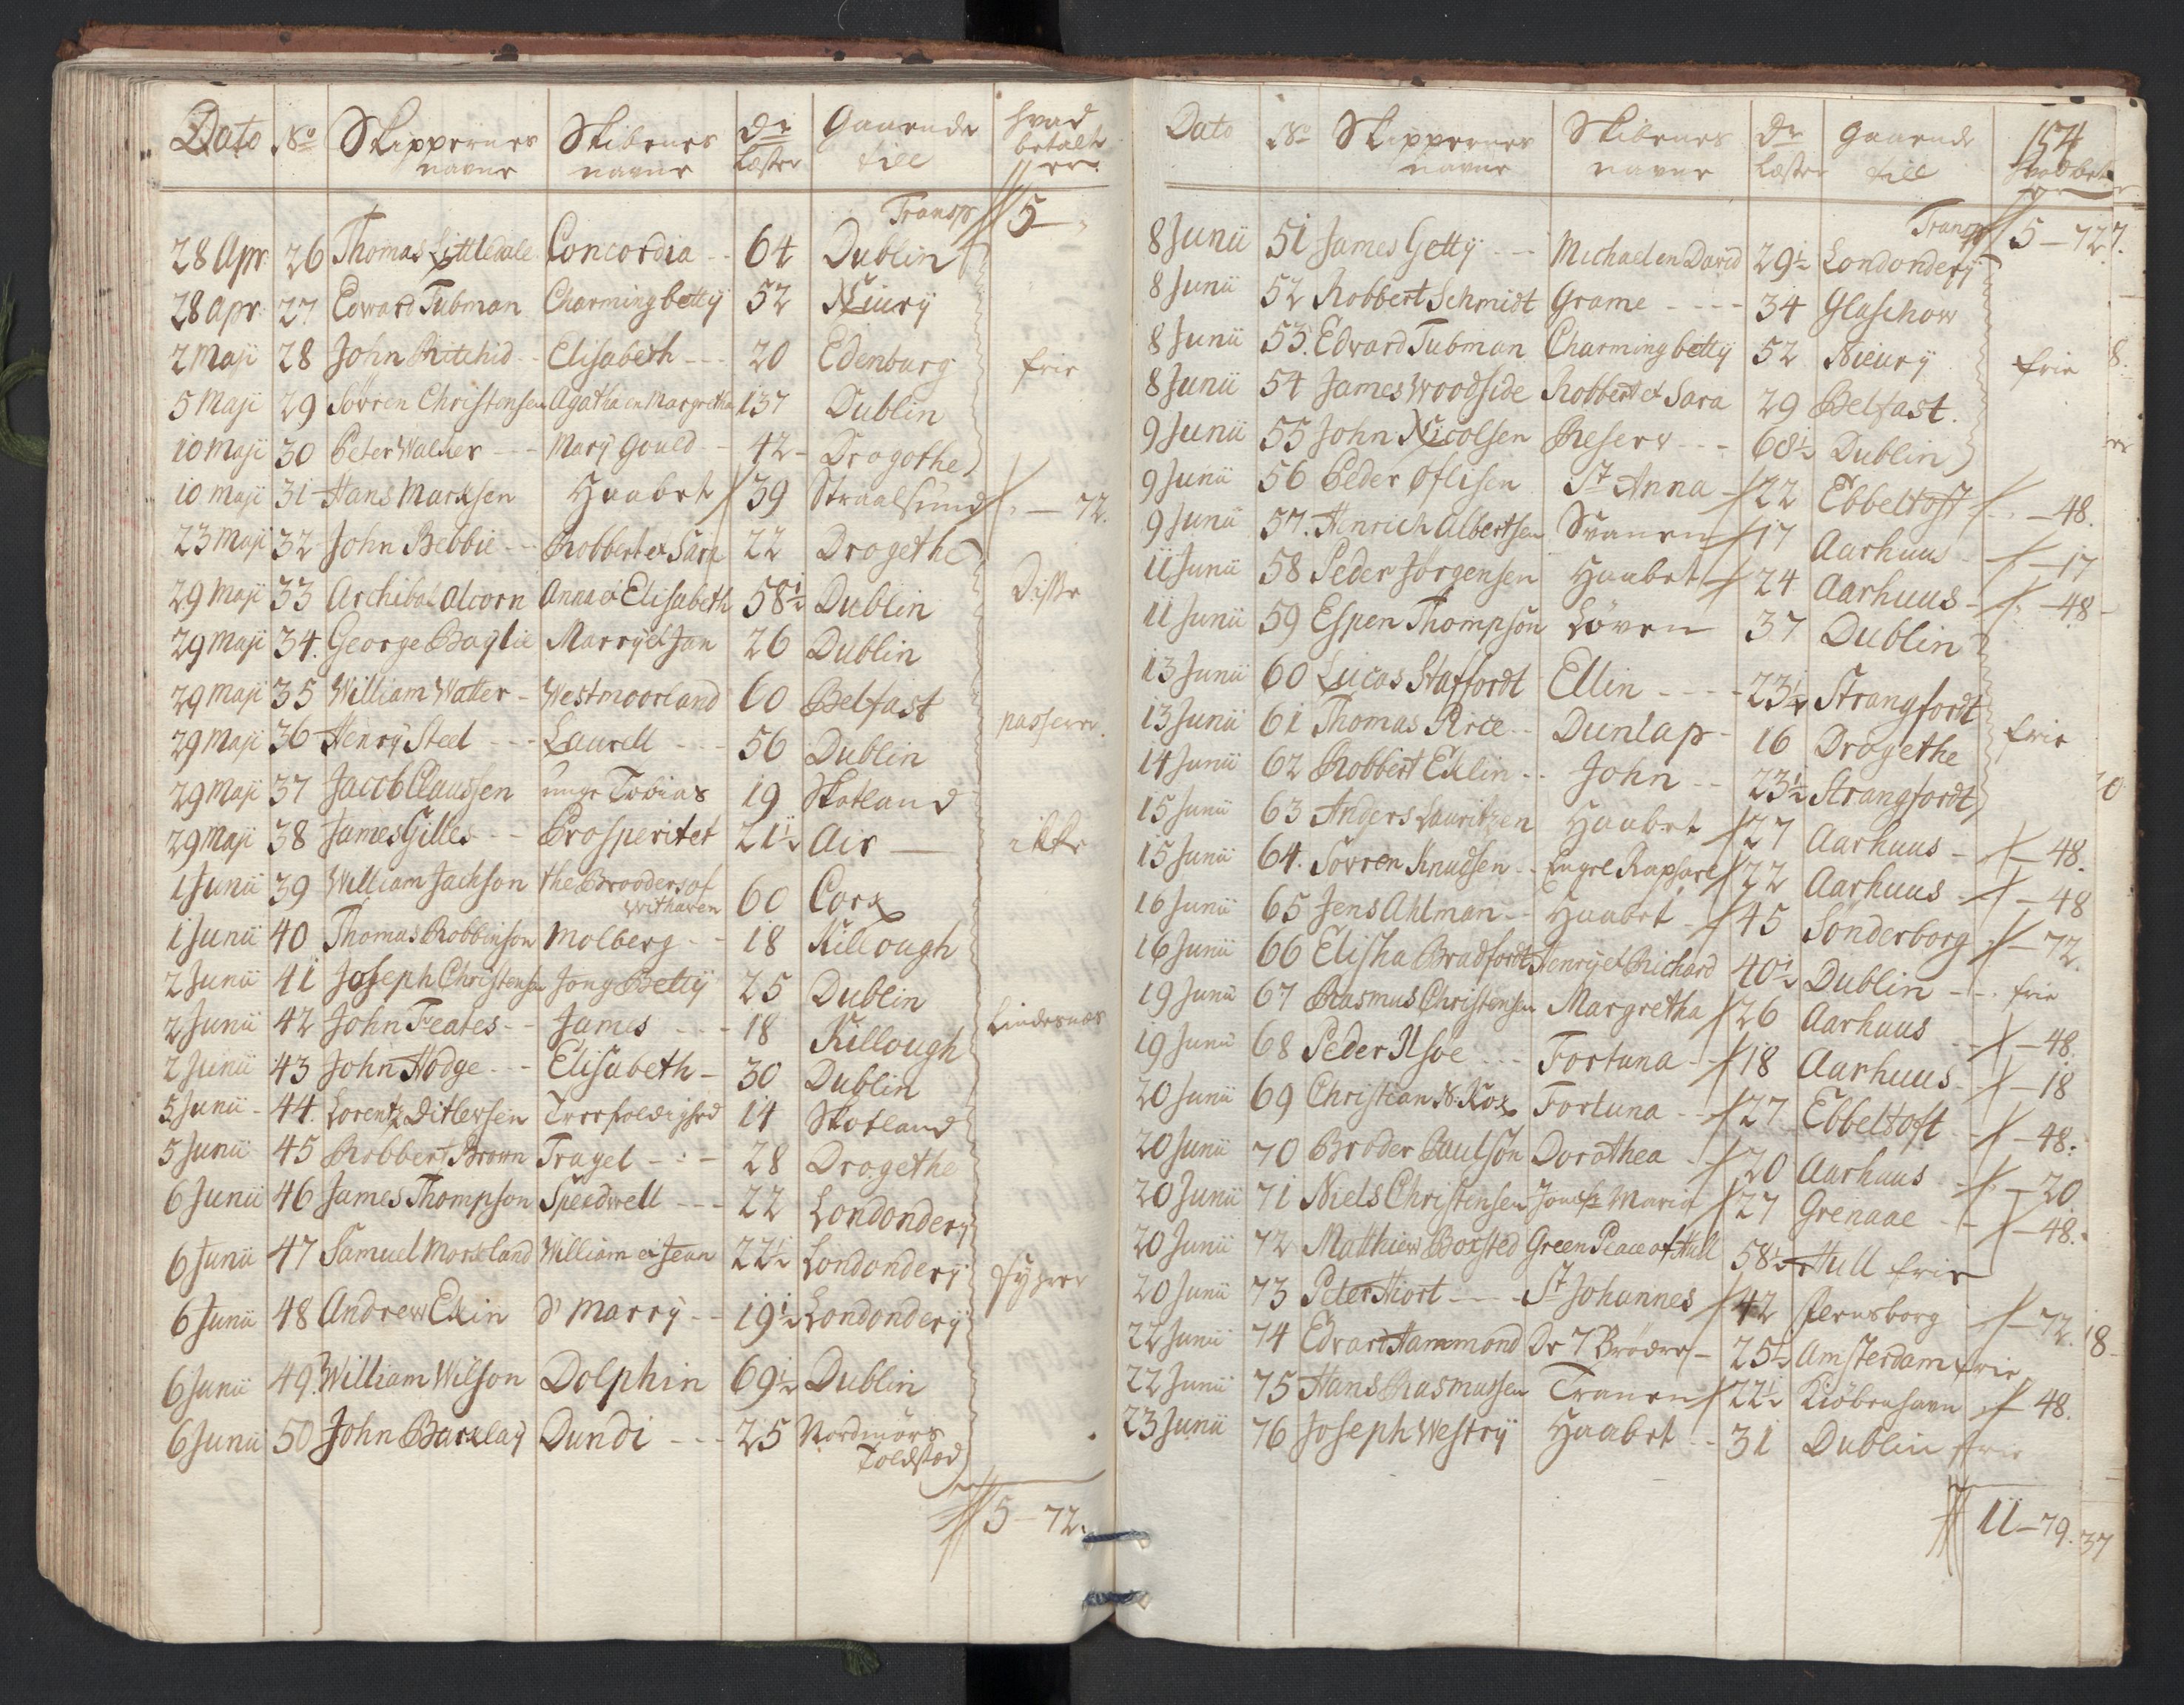 Dato No Skippernes navne Skibenes navne Dr Læster Gaaende till hvad betalt er
Transp 5 –
28 Apr 26 Thomas Littledale Concordia 64 Dublin
28 apr 27 Edward Tubman Charming betty 52 Niury
2 Maji 28 John Ritchid Elisabeth 20 Edenburg frie
5 Maji 29 Sövren Christensen Agatha en Margretha 137 Dublin
10 Maji 30 Peter Walker Mary Gould 42 Drogothe
10 Maji 31 Hans Marksen Haabet 39 Straalsund – 72.
23 Maji 32 John Bebbie Robbert et Sara 22 Drogethe
29 Maji 33 Archibal Alcorn Anna et Elisabeth 58½ Dublin Disse
29 Maji 34. George Baylie Marry et Jan 26 Dublin
29 Maji 35 William Watter Westmoorland 60 Belfast
29 Maji 36 Henry Steel Laurell 56 Dublin passerer
29 Maji 37 Jacob Claussen unge Tobias 19 Skotland
29 Maji 38 James Gilles Prosperitet 21½ Air ikke
1 Junii 39 William Jackson the Brooders of Withaven 60 Corx
1 Junii 40 Thomas Robbinson Molberg 18 Killough
2 Junii 41 Joseph Christensen Jong Betty 25 Dublin
2 Junii 42 John Feates James 18 Killough Lindesnæs
2 Junii 43 John Hodge Elisabeth 30 Dublin
5 Junii 44. Lorentz Ditlevsen Treefoldighed 14 Skotland
5 Junii 45 Robbert Brown Tragel 28 Drogethe
6 Junii 46 James Thompson Speedwell 22 Londondery
6 Junii 47 Samuel Morkeland William et Jean 22½ Londondery
6 Junii 48 Andrew Ekin d' Marry 19½ Londondery
6 Junii 49. William Wilson Dolphin 69½ Dublin
6 Junii 50 John Barklay Dundi 25 Nordmörs Toldsted
5 – 72.
Dato No Skippernes navne Skibenes navne Dr Læster gaaende till 154 hvad bet.
Transp 5 – 72
8 Junii 51 James Getty Michael en David 29½ Londondery
8 Junii 52 Robbert Schmidt Grame 34 Glaschow
8 Junii 53. Edvard Tubman Charming betty 52 Nieury frie
8 Junii 54 James Woodside Robbert et Sara 29 Belfast.
9 Junii 55 John Nicolsen Reserv 68½ Dublin
9 Junii 56 Peder Øflisen St Anna 22 Ebbeltoft – 48.
9 Junii 57. Henrich Albertsen Svanen 17 Aarhuus – 17
11 Junii 58 Peder Jörgensen Haabet 24 Aarhuus – 48
11 Junii 59 Espen Thompsön Löven 37 Dublin
13 Junii 60 Lucas Staffordt Ellin 23½ Strangfordt
13 Junii 61 Thomas Price Dunlap 16 Drogethe frie
14 Junii 62 Robbert Eklin John 23½ Strangfordt
15 Junii 63 Anders Lauritzen Haabet 27 Aarhuus – 48.
15 Junii 64. Sövren Knudsen Engel Raphael 22 Aarhuus – 48
16 Junii 65 Jens Ahlman Haabet 45 Sönderborg – 72.
16 Junii 66 Elisha Bradfordt Henry et Richard 40½ Dublin frie
19 Junii 67 Rasmus Christensen Margretha 26 Aarhuus – 48.
19 Junii 68 Peder Ilsöe Fortuna 18 Aarhuus – 18
20 Junii 69 Christian N: Kox Fortuna 27 Ebbeltoft – 48.
20 Junii 70 Broder Paulsön Dorothea 20 Aarhuus – 20
20 Junii 71 Niels Christensen Jomfr Maria 27 Grenaae – 48.
20 Junii 72 Matthiew Boxsted Green Peace of Hull 58½ Hull frie
20 Junii 73 Peter Hiort St Johannes 42 flensborg – 72.
22 Junii 74 Edvart Hammond De 7 Brödre 25½ Amsterdam frie
22 Junii 75 Hans Rasmussen Tranen 22½ Kiöbenhavn – 48.
23 Junii 76 Joseph Westry Haabet 31 Dublin frie
11 – 79.
37